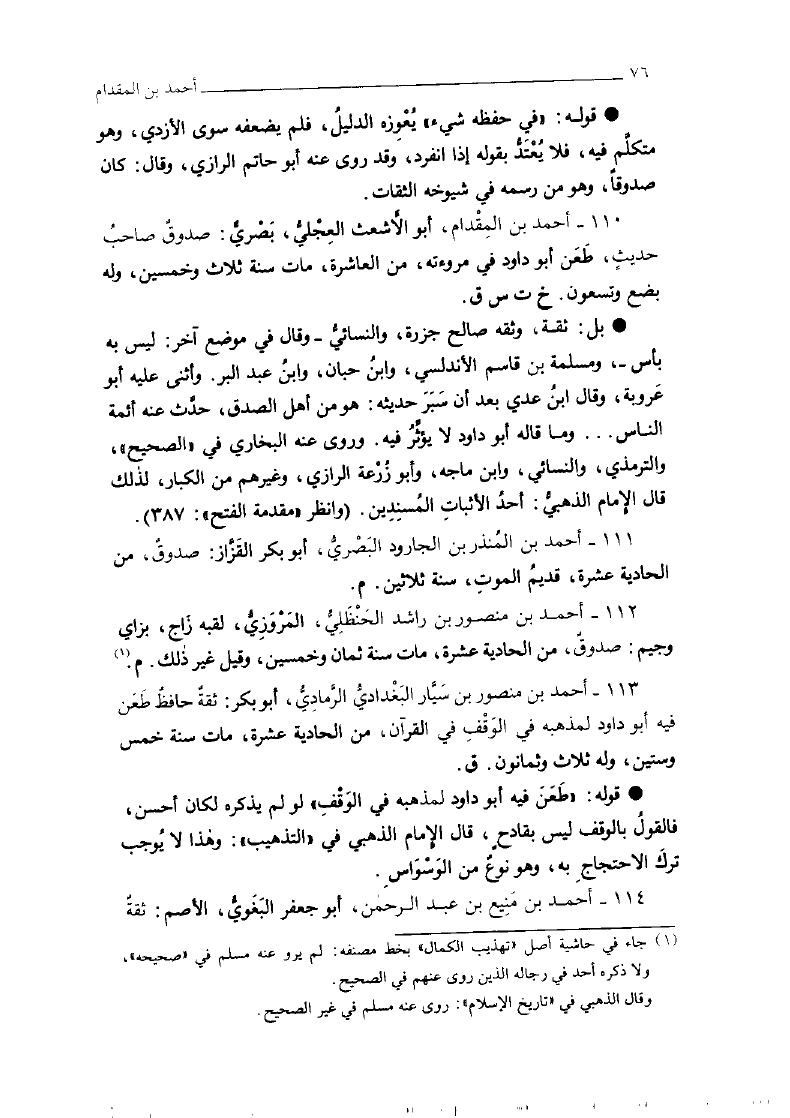 ٧٦ أحمد بن المقدام
● قوله: «في حفظه شيء» يُعْوِزه الدليلُ، فلم يضعفه سوى الأزدي، وهو
متكلَّم فيه، فلا يُعْتَدُّ بقوله إذا انفرد، وقد روى عنه أبو حاتم الرازي، وقال: كان
صدوقاً، وهو من رسمه في شيوخه الثقات.
١١٠ ـ أحمد بن المِقْدام، أبو الأَشعث العِجْليُّ، بَصْريٌّ: صدوقٌ صاحبُ
حديثٍ، طَعَن أبو داود في مروءته، من العاشرة، مات سنة ثلاث وخمسين، وله
بضع وتسعون. خ ت س ق.
● بل: ثقة، وثقه صالح جزرة، والنسائيُّ ـ وقال في موضع آخر: ليس به
بأس ـ، ومسلمة بن قاسم الأندلسي، وابنُ حبان، وابنُ عبد البر. وأثنى عليه أبو
عَروبة، وقال ابنُ عدي بعد أن سَبَرَ حديثه: هو من أهل الصدق، حدَّث عنه أئمة
الناس... وما قاله أبو داود لا يؤثِّرُ فيه. وروى عنه البخاري في «الصحيح»،
والترمذي، والنسائي، وابن ماجه، وأبو زُرْعة الرازي، وغيرهم من الكبار، لذلك
قال الإمام الذهبيُّ: أحدُ الأثباتِ المُسنِدِين. (وانظر «مقدمة الفتح»: ٣٨٧).
١١١ ـ أحمد بن المُنذر بن الجارود البَصْريُّ، أبو بكر القَزَّاز: صدوقٌ، من
الحادية عشرة، قديمُ الموتِ، سنة ثلاثين. م.
١١٢ ـ أحمد بن منصور بن راشد الحَنْظَلِيُّ، المَرْوَزِيُّ، لقبه زَاج، بزاي
وجيم: صدوقٌ، من الحادية عشرة، مات سنة ثمان وخمسين، وقيل غير ذٰلك. م.(١)
١١٣ ـ أحمد بن منصور بن سَيَّار البَغْداديُّ الرَّماديُّ، أبو بكر: ثقةٌ حافظٌ طَعَن
فيه أبو داود لمذهبه في الوَقْفِ في القرآن، من الحادية عشرة، مات سنة خمس
وستين، وله ثلاث وثمانون. ق.
● قوله: «طَعَنَ فيه أبو داود لمذهبه في الوَقْفِ» لو لم يذكره لكان أحسن،
فالقولُ بالوقف ليس بقادحٍ، قال الإمام الذهبي في «التذهيب»: وهٰذا لا يُوجب
تركَ الاحتجاجِ به، وهو نوعٌ من الوَسْوَاسِ.
١١٤ ـ أحمد بن مَنِيع بن عبد الرحمٰن، أبو جعفر البَغَويُّ، الأصم: ثقةٌ
(١) جاء في حاشية أصل «تهذيب الكمال» بخط مصنفه: لم يرو عنه مسلم في «صحيحه»،
ولا ذكره أحد في رجاله الذين روى عنهم في الصحيح.
وقال الذهبي في «تاريخ الإسلام»: روى عنه مسلم في غير الصحيح.